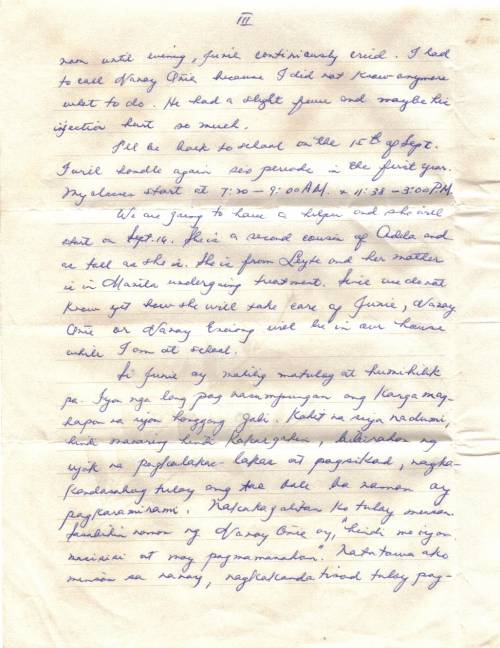 III
noon until evening, Junie continuously cried. I had
to call Nanay Onie because I did not know anymore
what to do. He had a slight fever and maybe his
injection hurt so much.
I'll be back to school on the 15th of Sept.
I will handle again six periods in the first year.
My classes start at 7:30 – 9:00 AM. & 11:38 – 3:00 P.M.
We are going to have a helper and she will
start on Sept. 14. She is a second cousin of Adela and
as tall as she is. She is from Leyte and her mother
is in Manila undergoing treatment. Since we do not
know yet how she will take care of Junie, Nanay
Onie or Nanay will be in our house
while I am at school.
Si Junie ay maling matulog at humihilik
pa. Iyon nga lang pag nasumpungan ang karga mag-
hapon na iyon hanggang gabi. Kahit na siya nadumi,
hindi maaring hindi kakargahin,  ng
uyok na paglalakas-lakas at pagsikad, nagka-
kandasabog tuloy ang tae dali ba naman ay
pagkarami-rami. Nakakagalitan ko tuloy minsan.
 naman ng Nanay Onie ay, "hindi mo iyon
masisisi at may pagmamanahan". Natatawa ako
minsan sa nanay, nagkakanda tisod tuloy pag-